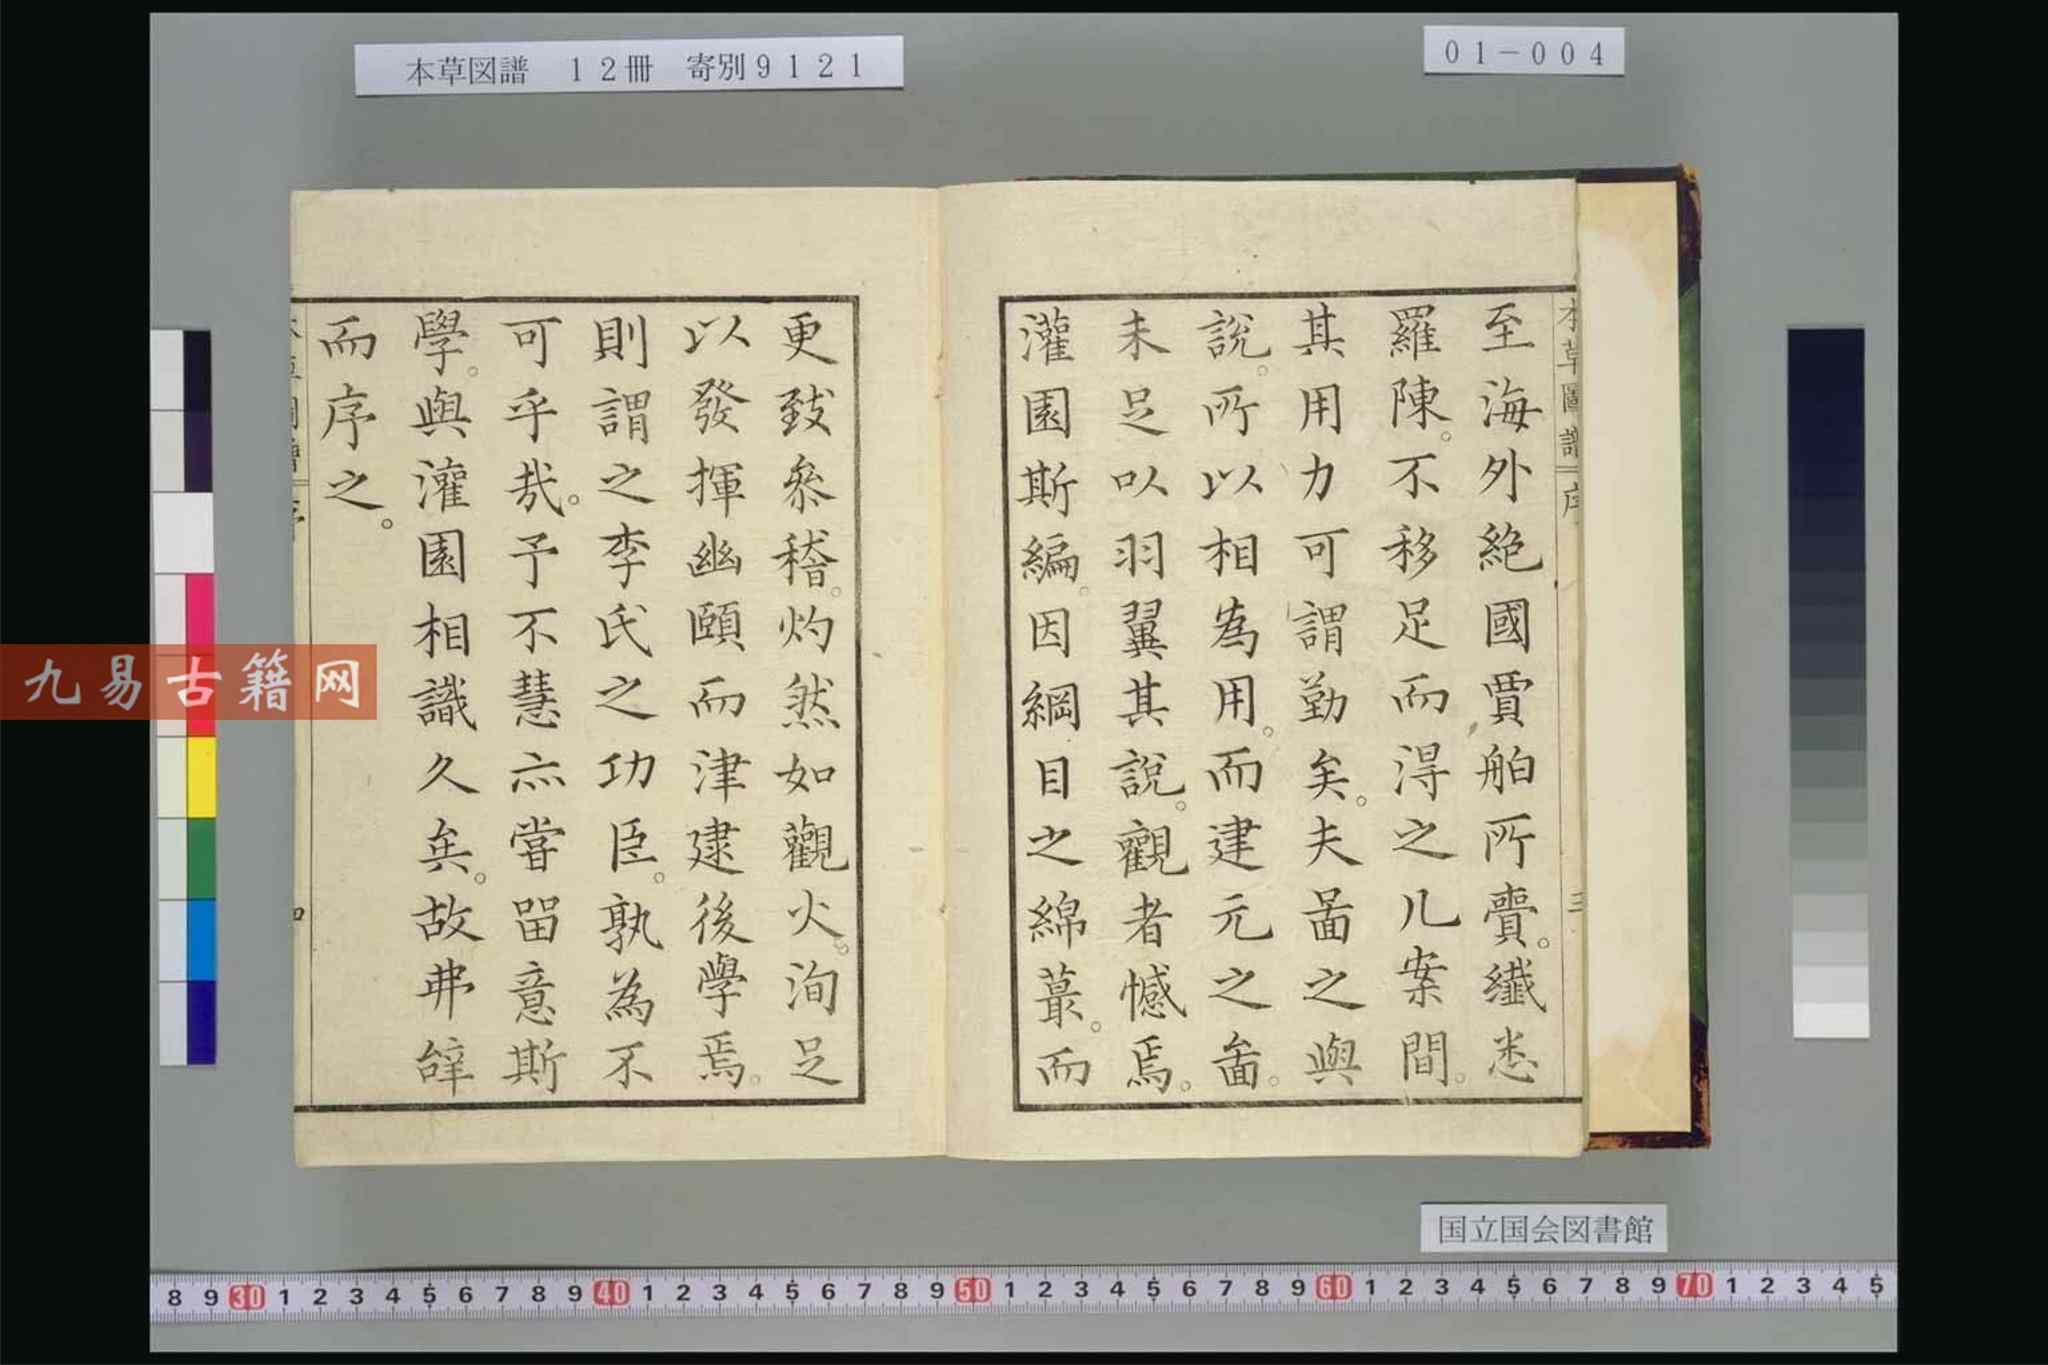 本草図譜　12冊　寄別9121
01-004
本草圖譜 序
三
至海外絶國賈舶所賷。纎悉
羅陳。不移足而淂之几案間。
其用力可謂勤矣。夫啚之與
說。所以相為用。而建元之啚。
未足以羽翼其說。觀者憾焉。
灌園斯編。因綱目之綿蕞。而
更致叅稽。灼然如觀火。洵足
以發揮幽頤而津逮後學焉。
則謂之李氏之功臣。孰為不
可乎哉。予不慧亦嘗留意斯
學。與灌園相識久矣。故弗辝
而序之。
九易古籍网
国立国会図書館
8 9 30 1 2 3 4 5 6 7 8 9 40 1 2 3 4 5 6 7 8 9 50 1 2 3 4 5 6 7 8 9 60 1 2 3 4 5 6 7 8 9 70 1 2 3 4 5